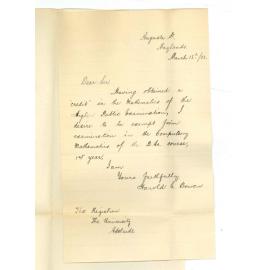 Augusta St.
Maylands
March 15th/02.
Dear Sir
Having obtained a
"credit" in the Mathematics of the
Higher Public Examination, I
desire to be exempt from
examination in the Compulsory
Mathematics of the B.Sc. course,
1st year.
I am
Yours faithfully
Harold
The Registrar
The University
Adelaide